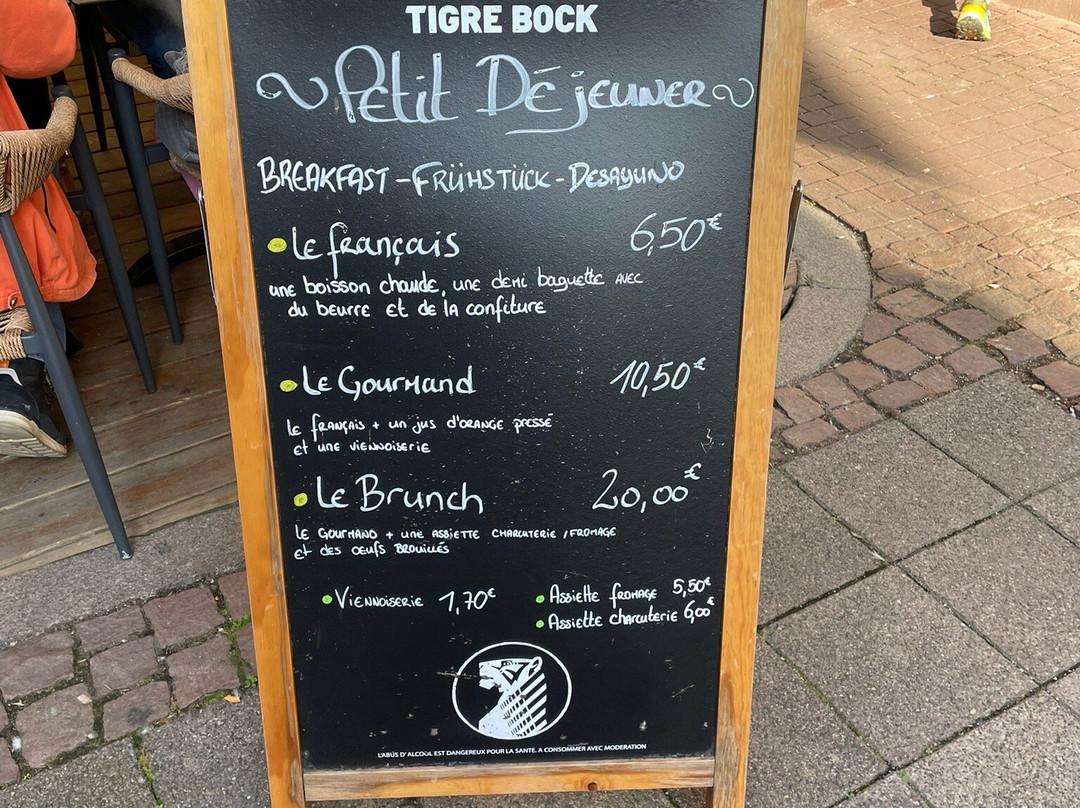 TIGRE BOCK
Petit Déjeuner
BREAKFAST - FRÜHSTÜCK - DESAYUNO
Le français 6,50€
une boisson chaude, une demi baguette AVEC
du beurre et de la confiture
Le Gourmand 10,50€
le français + un jus d'orange pressé
et une viennoiserie
Le Brunch 20,00€
Le Gourmand + une assiette charcuterie / fromage
et des oeufs brouillés
Viennoiserie 1,70€
Assiette fromage 5,50€
Assiette charcuterie 6,00€
L'ABUS D'ALCOOL EST DANGEREUX POUR LA SANTE. A CONSOMMER AVEC MODERATION